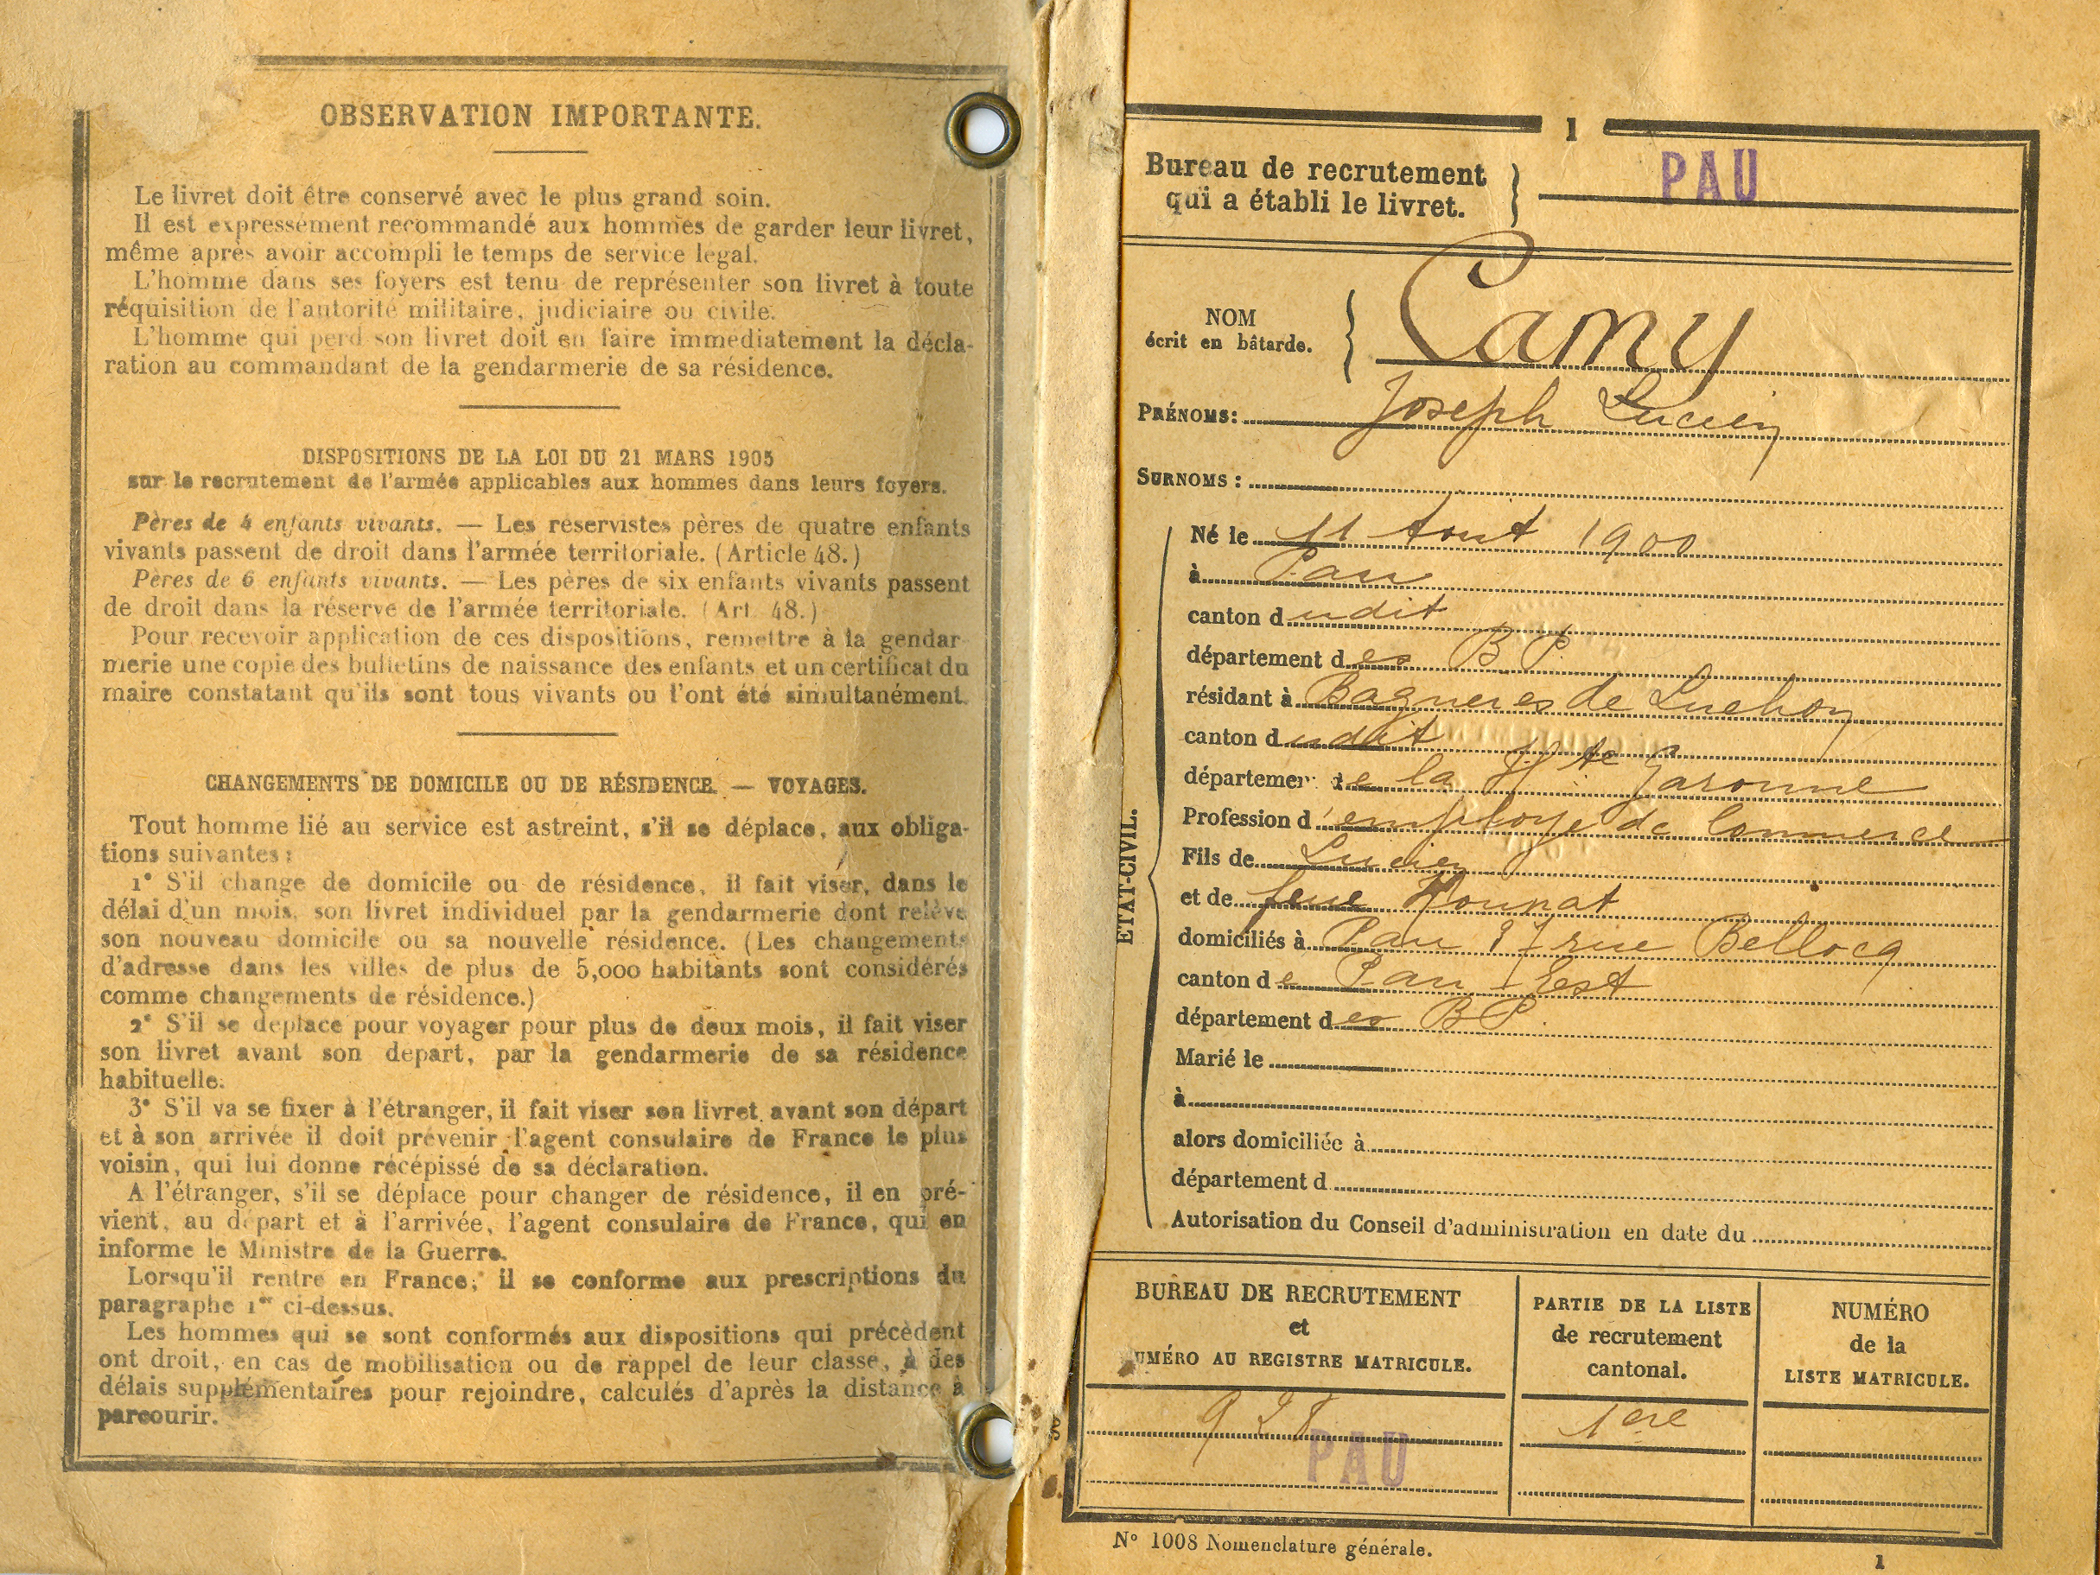 OBSERVATION IMPORTANTE.
Le livret doit être conservé avec le plus grand soin.
Il est expressément recommandé aux hommes de garder leur livret,
même après avoir accompli le temps de service légal.
L'homme dans ses foyers est tenu de représenter son livret à toute
réquisition de l'autorité militaire, judiciaire ou civile.
L'homme qui perd son livret doit en faire immédiatement la décla-
ration au commandant de la gendarmerie de sa résidence.
DISPOSITIONS DE LA LOI DU 21 MARS 1905
sur le recrutement de l'armée applicables aux hommes dans leurs foyers.
Pères de 4 enfants vivants. — Les réservistes pères de quatre enfants
vivants passent de droit dans l'armée territoriale. (Article 48.)
Pères de 6 enfants vivants. — Les pères de six enfants vivants passent
de droit dans la réserve de l'armée territoriale. (Art. 48.)
Pour recevoir application de ces dispositions, remettre à la gendar-
merie une copie des bulletins de naissance des enfants et un certificat du
maire constatant qu'ils sont tous vivants ou l'ont été simultanément.
CHANGEMENTS DE DOMICILE OU DE RÉSIDENCE. — VOYAGES.
Tout homme lié au service est astreint, s'il se déplace, aux obliga-
tions suivantes :
1° S'il change de domicile ou de résidence, il fait viser, dans le
délai d'un mois, son livret individuel par la gendarmerie dont relève
son nouveau domicile ou sa nouvelle résidence. (Les changements
d'adresse dans les villes de plus de 5,000 habitants sont considérés
comme changements de résidence.)
2° S'il se déplace pour voyager pour plus de deux mois, il fait viser
son livret avant son départ, par la gendarmerie de sa résidence
habituelle.
3° S'il va se fixer à l'étranger, il fait viser son livret avant son départ
et à son arrivée il doit prévenir l'agent consulaire de France le plus
voisin, qui lui donne récépissé de sa déclaration.
A l'étranger, s'il se déplace pour changer de résidence, il en pré-
vient, au départ et à l'arrivée, l'agent consulaire de France, qui en
informe le Ministre de la Guerre.
Lorsqu'il rentre en France, il se conforme aux prescriptions du
paragraphe 1er ci-dessus.
Les hommes qui se sont conformés aux dispositions qui précèdent
ont droit, en cas de mobilisation ou de rappel de leur classe, à des
délais supplémentaires pour rejoindre, calculés d'après la distance à
parcourir.
1
Bureau de recrutement
qui a établi le livret. } PAU
NOM
écrit en bâtarde. { Camy
PRÉNOMS: Joseph Lucien
SURNOMS :
ÉTAT-CIVIL.
Né le 11 Aout 1900
à Pau
canton dudit
département des B P.
résidant à Bagneres de Luchon
canton dudit
département de la Hte Garonne
Profession d'employé de Commerce
Fils de Lucien
et de feue Hounat
domiciliés à Pau 87 rue Bellocq
canton de Pau Est
département des B P.
Marié le
à
alors domiciliée à
département d
Autorisation du Conseil d'administration en date du
BUREAU DE RECRUTEMENT
et
NUMÉRO AU REGISTRE MATRICULE.
PARTIE DE LA LISTE
de recrutement
cantonal.
NUMÉRO
de la
LISTE MATRICULE.
928 PAU
1ere
N° 1008 Nomenclature générale.
1